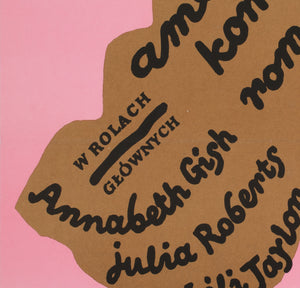 ame
kom
rom
W ROLACH
GŁÓWNYCH
Annabeth Gish
julia Roberts
Lili Taylor